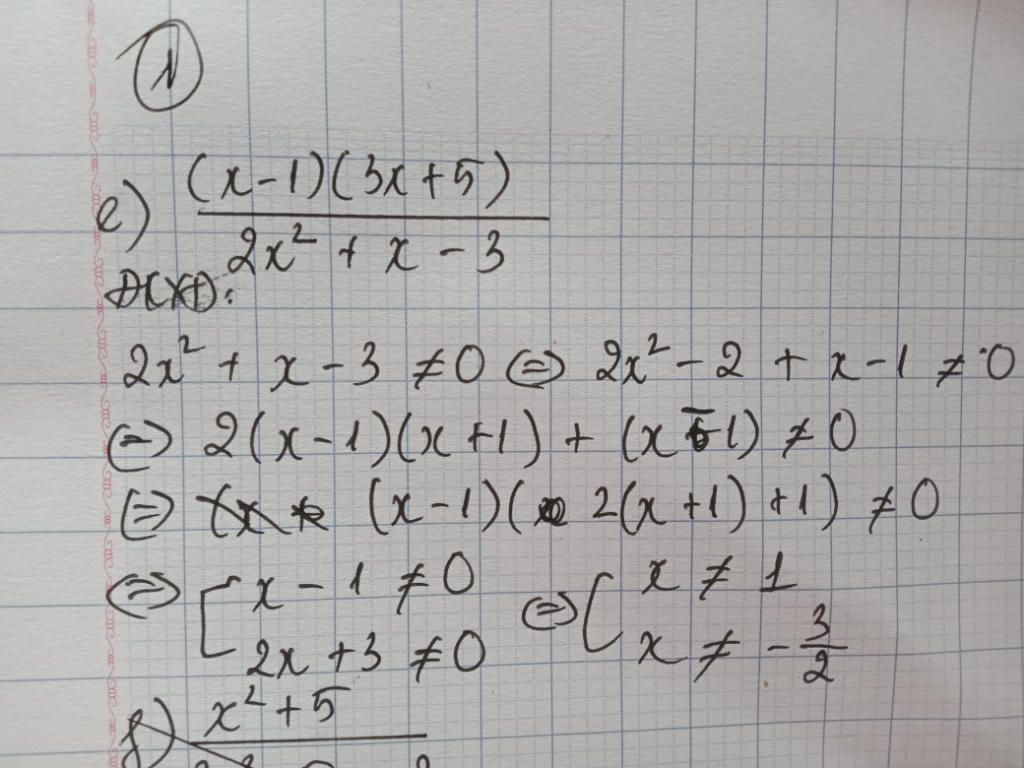 1
e) (x-1)(3x+5)
2x² + x - 3
ĐKXĐ:
2x² + x - 3 ≠ 0 ⇔ 2x² - 2 + x - 1 ≠ 0
⇔ 2(x-1)(x+1) + (x-1) ≠ 0
⇔ (x-1)(2(x+1)+1) ≠ 0
⇔ [ x - 1 ≠ 0 ⇔ [ x ≠ 1
2x + 3 ≠ 0 x ≠ -3/2
f) x² + 5